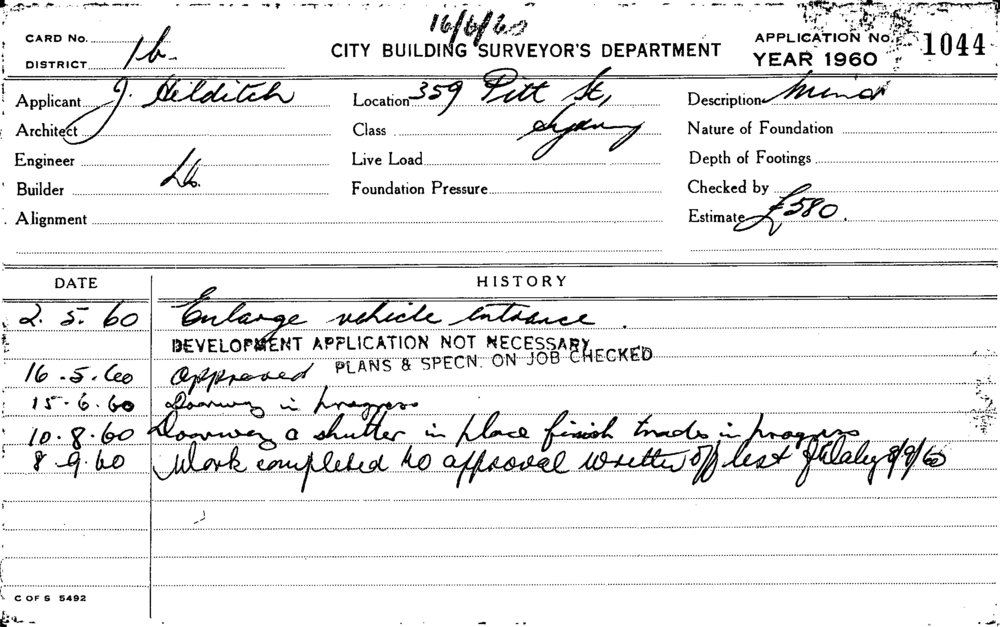 16/6/60
CARD No.
CITY BUILDING SURVEYOR'S DEPARTMENT
APPLICATION No. 1044
DISTRICT 1b.
YEAR 1960
Applicant J. Hilditch
Location 359 Pitt St,
Description Minor
Architect
Class Sydney
Nature of Foundation
Engineer
Live Load
Depth of Footings
Builder
Foundation Pressure
Checked by
Alignment
Estimate £580.
DATE HISTORY
2. 5. 60 Enlarge vehicle entrance.
DEVELOPMENT APPLICATION NOT NECESSARY
PLANS & SPECN. ON JOB CHECKED
16.5.60 Approved
15.6.60 Doorway in progress
10.8.60 Doorway & shutter in place finish trades in progress
8.9.60 Work completed to approval written off list 8/9/60
C OF S 5492